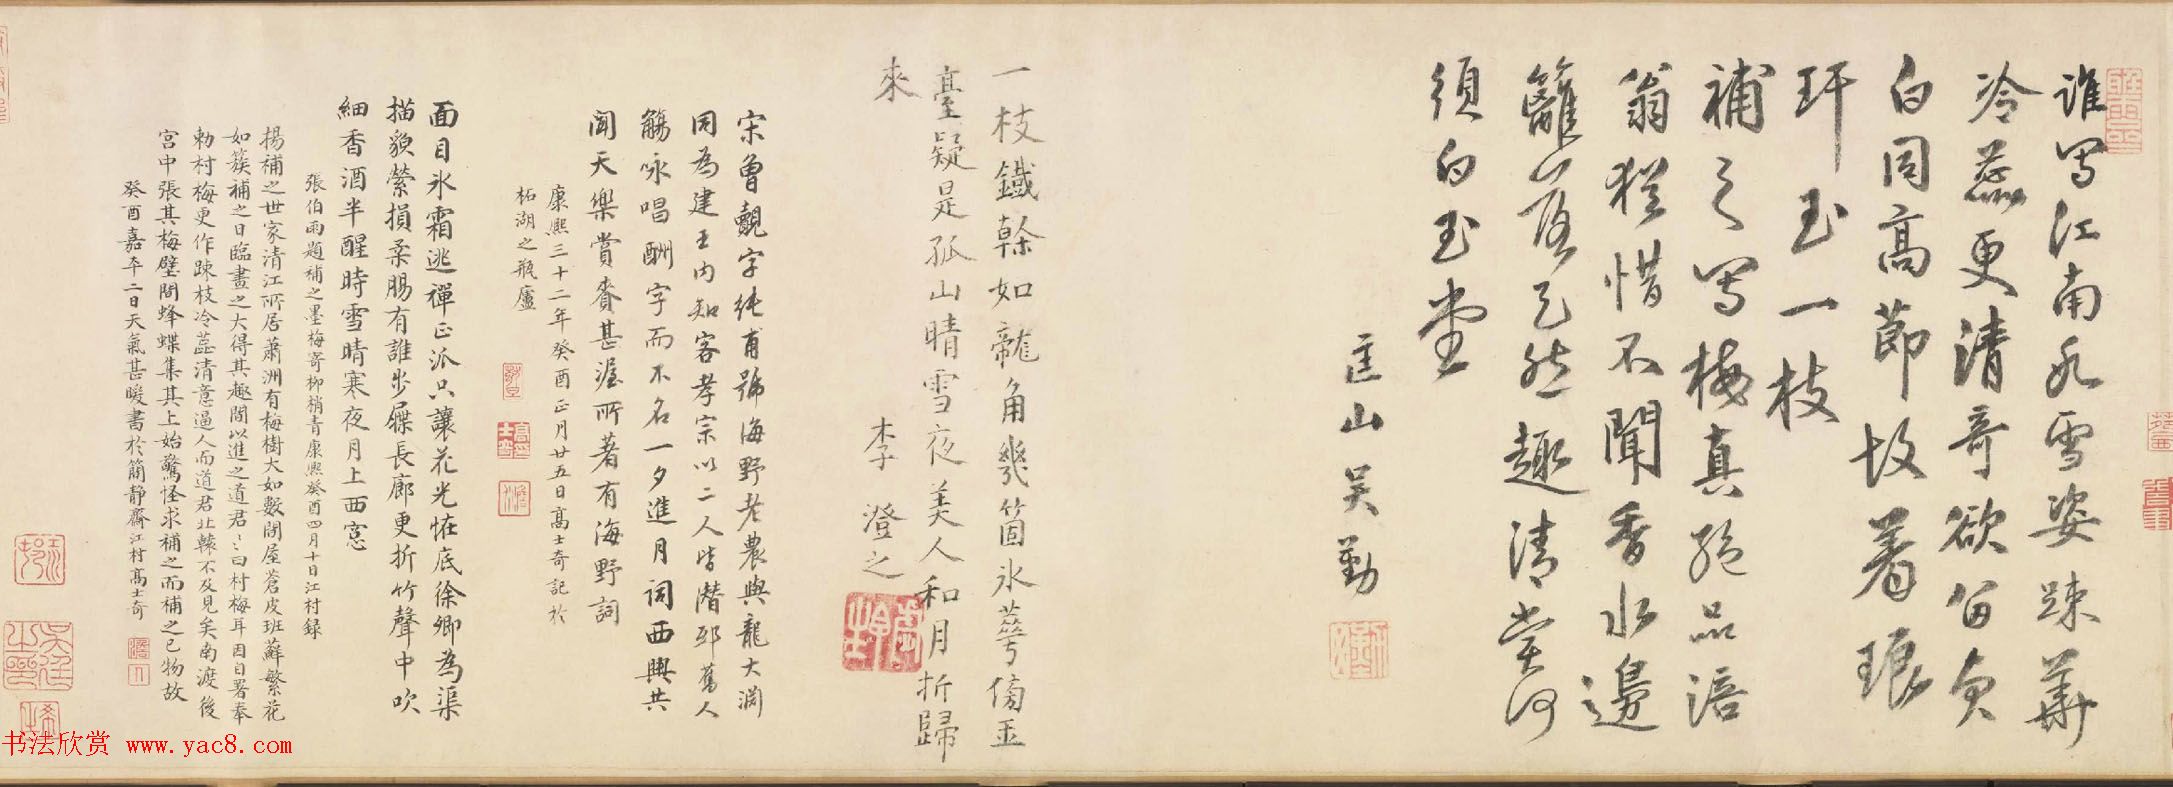 誰寫江南水雪姿踈華
冷蕊更清奇欲留貞
白同高節故着琅
玕玉一枝
補之寫梅真絕品涪
翁猶惜不聞香水邊
籬落天然趣清賞何
須白玉堂
匡山吳勤
一枝鐵榦如龍角幾箇氷華傍玉
臺疑是孤山晴雪夜美人和月折歸
來
李澄之
宋曾覿字純甫號海野老農與龍大淵
同為建王內知客孝宗以二人皆潛邸舊人
觴咏唱酬字而不名一夕進月詞西興共
聞天樂賞賚甚渥所著有海野詞
康熙三十二年癸酉正月廿五日高士奇記於
柘湖之瓶廬
面目氷霜逃禪正派只讓花光恠底徐卿為渠
描貌縈損柔腸有誰步屧長廊更折竹聲中吹
細香酒半醒時雪晴寒夜月上西窓
張伯雨題補之墨梅寄柳梢青康熙癸酉四月十日江村錄
揚補之世家清江所居蕭洲有梅樹大如數間屋蒼皮班蘚繁花
如簇補之日臨畫之大得其趣間以進之道君〻曰村梅耳因自署奉
勅村梅更作踈枝冷蕊清意逼人而道君北轅不及見矣南渡後
宮中張其梅壁間蜂蝶集其上始驚怪求補之而補之已物故
癸酉嘉平二日天氣甚暖書於簡靜齋江村高士奇
书法欣赏 www.yac8.com